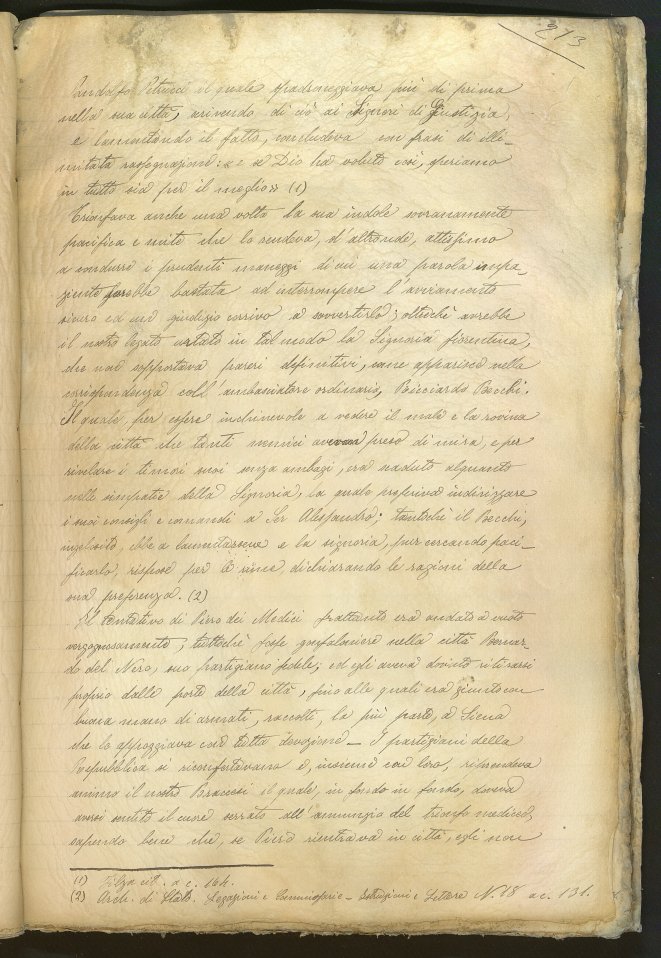 213
Pandolfo Petrucci il quale spadroneggiava più di prima
nella sua città, scrivendo di ciò ai Signori di Giustizia,
e lamentando il fatto, concludeva con frasi di illi-
mitata rassegnazione: « e a Dio ha voluto così, speriamo
in tutto sia per il meglio » (1)
Trionfava anche una volta la sua indole sovranamente
pacifica e mite che lo rendeva, d'altronde, attissimo
a condurre i prudenti maneggi di cui una parola impa-
ziente sarebbe bastata ad interrompere l'avviamento
sicuro ed un giudizio corrivo a sovvertirlo; oltrechè avrebbe
il nostro legato urtato in tal modo la Signoria fiorentina,
che non sopportava pareri definitivi, come apparisce nella
corrispondenza coll'ambasciatore ordinario, Ricciardo Becchi.
Il quale per essere inchinevole a vedere il male e la rovina
della città che tanti nemici avevan preso di mira, e per
rivelare i timori suoi senza ambagi, era scaduto alquanto
nelle simpatie della Signoria, la quale preferiva indirizzare
i suoi consigli e comandi a Ser Alessandro; tantochè il Becchi,
ingelosito, ebbe a lamentarsene e la signoria, pur cercando paci-
ficarlo, rispose per le rime, dichiarando le ragioni della
sua preferenza. (2)
Il tentativo di Piero dei Medici frattanto era andato a vuoto
vergognosamente, tuttochè fosse gonfaloniere nella città Bernar-
do del Nero, suo partigiano fedele; ed egli aveva dovuto ritirarsi
presso dalle porte della città, fino alle quali era giunto con
buona mano di armati, raccolti, la più parte, a Siena
che lo appoggiava con tutta devozione — I partigiani della
Repubblica si riconfortavano e, insieme con loro, riprendeva
animo il nostro Braccesi il quale, in fondo in fondo, doveva
aversi sentito il cuore serrato all'annunzio del trionfo mediceo,
sapendo bene che, se Piero rientrava in città, egli non
(1) Filza cit. a c. 164.
(2) Arch. di Stato. Legazioni e Commissarie - Istruzioni e Lettere N. 18 a c. 131.